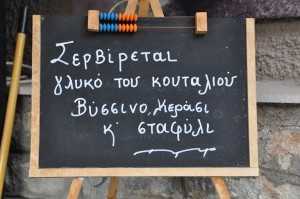 Σερβίρεται
γλυκό του κουταλιού
Βύσσινο, Κεράσι
κ' σταφύλι